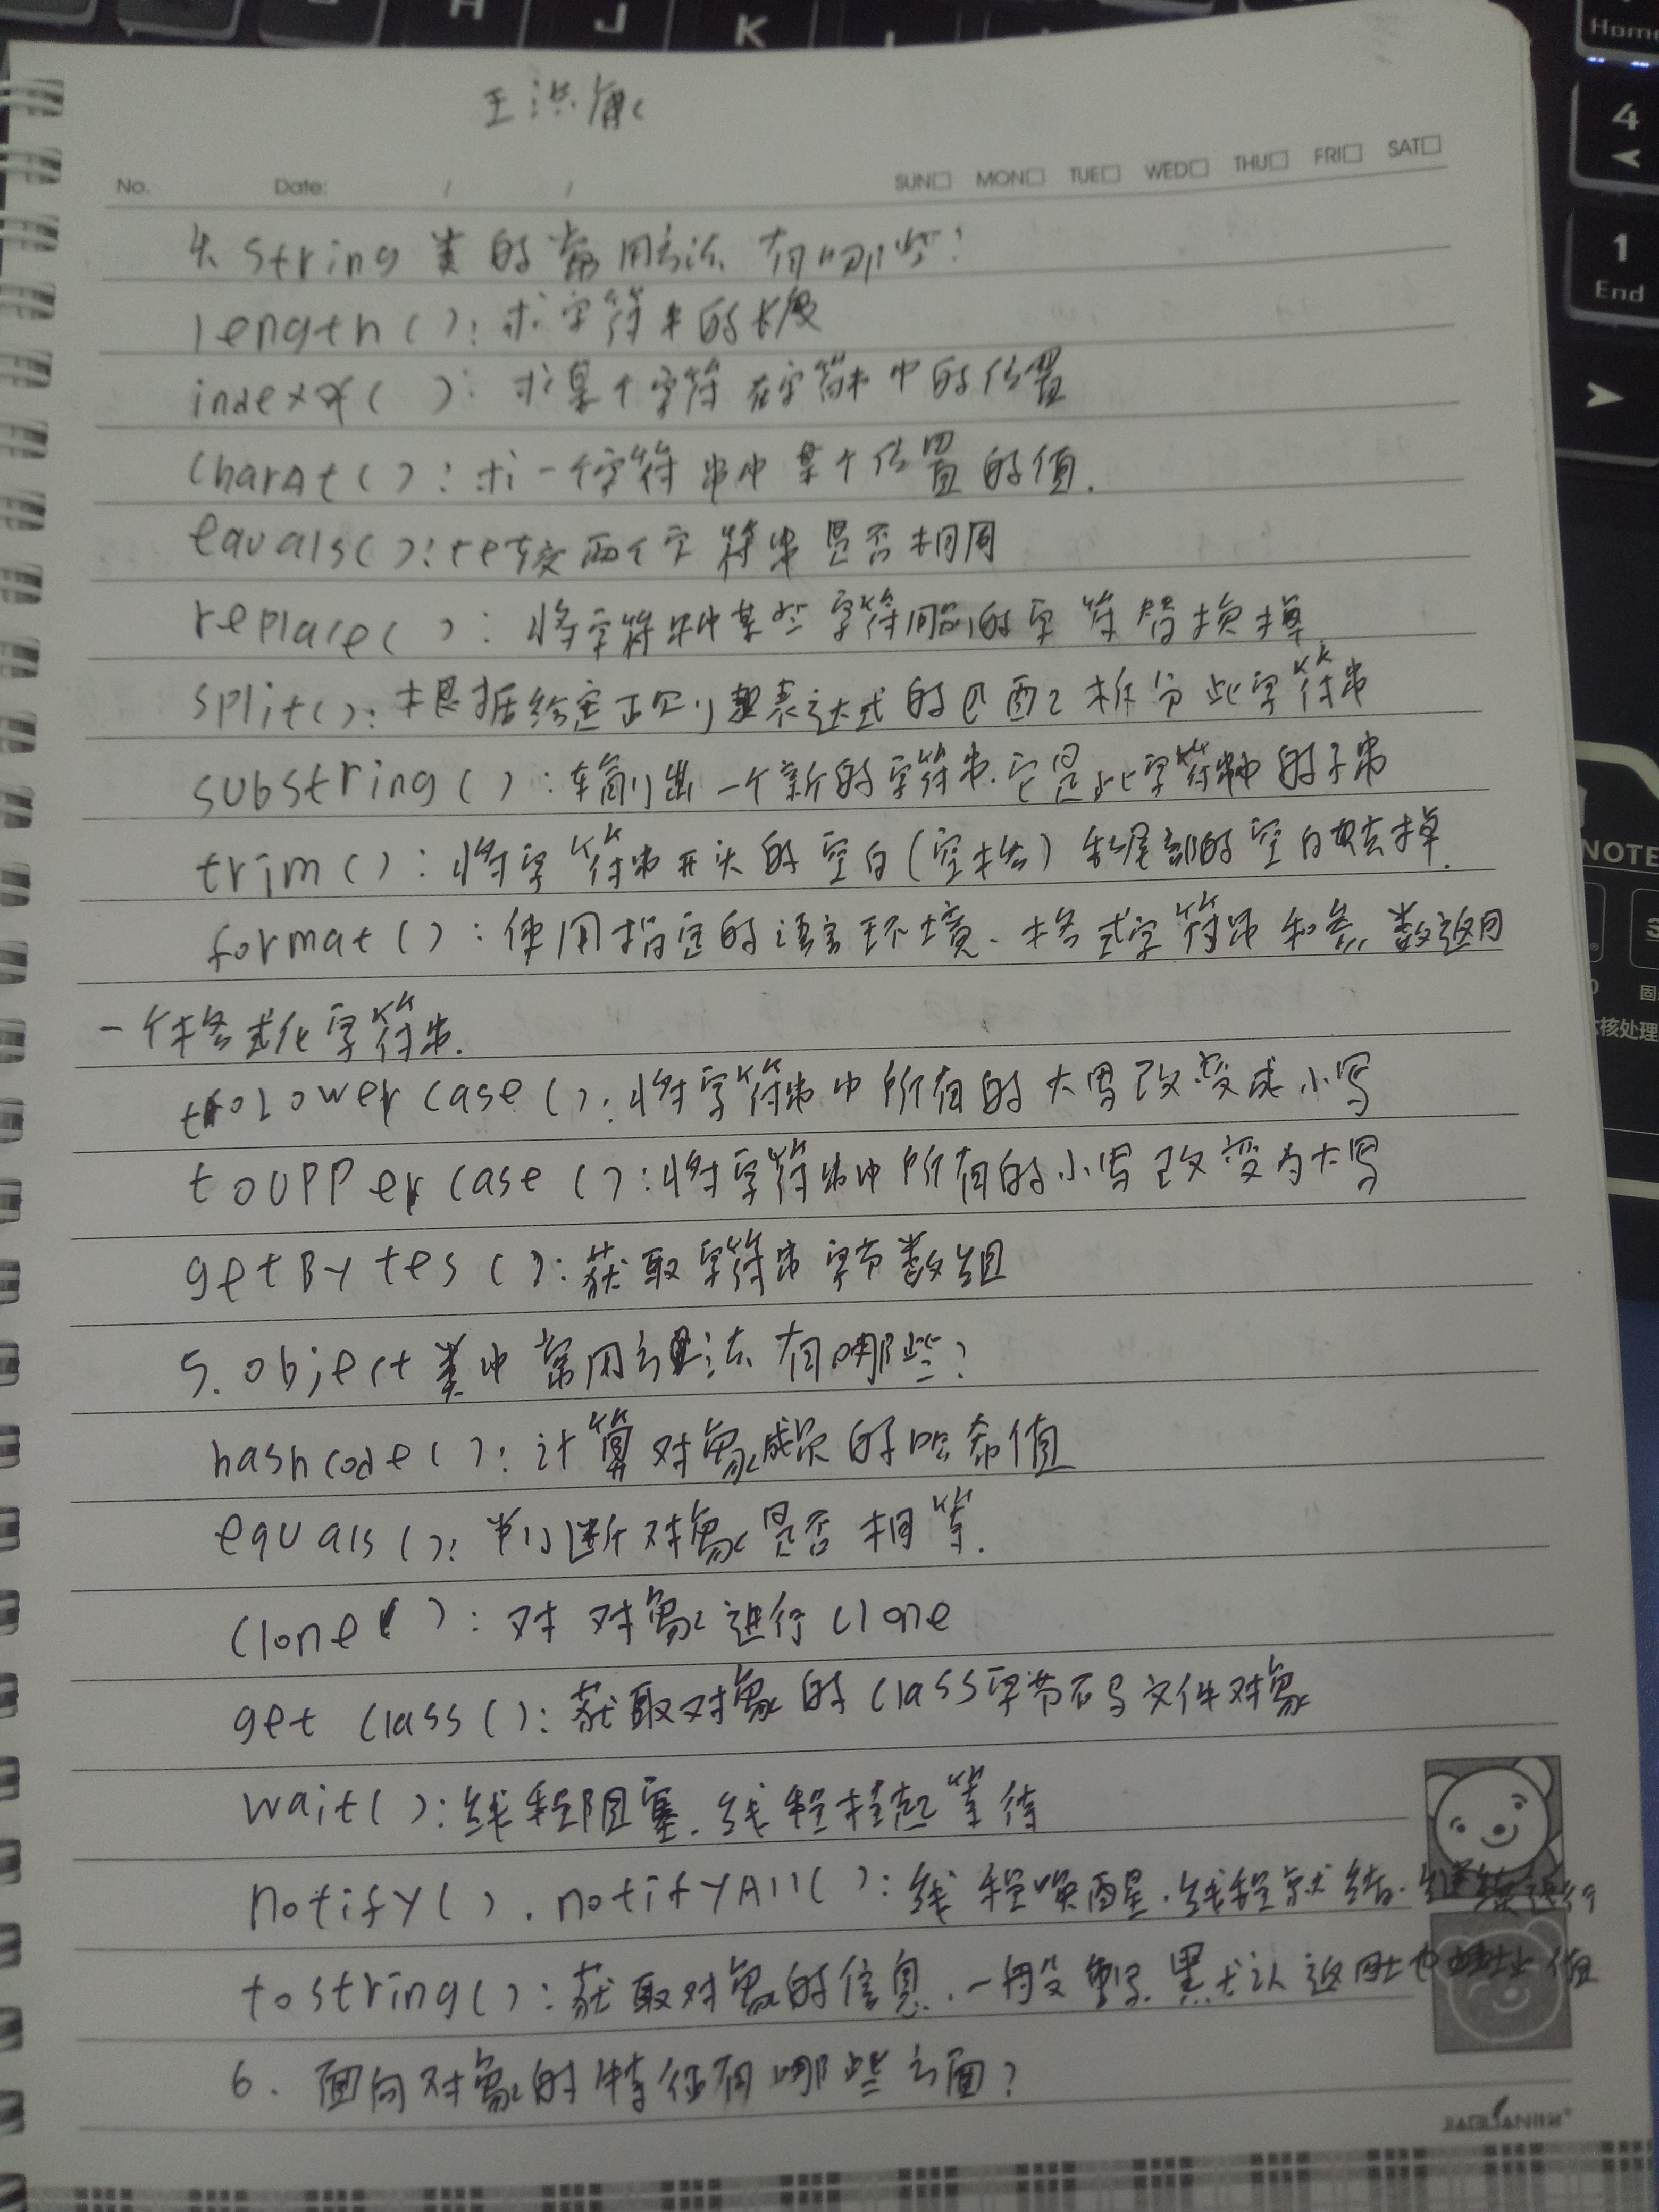 H J K L
Home
4
1
End
NOTE
固
核处理
王洪
No. Date: / / SUN□ MON□ TUE□ WED□ THU□ FRI□ SAT□
4. String 类的常用方法有哪些?
length(): 求字符串的长度
indexOf( ): 求某个字符在字符串中的位置
CharAt(): 求一个字符串中某个位置的值.
equals(): 比较两个字符串是否相同
replace( ): 将字符串中某些字符用别的字符替换掉.
split(): 根据给定正则表达式的匹配拆分此字符串
substring(): 输出一个新的字符串.它是此字符串中的子串
trim(): 将字符串开头的空白(空格)和尾部的空白去掉.
format(): 使用指定的语言环境、格式字符串和参数返回
一个格式化字符串.
toLowercase(): 将字符串中所有的大写改变成小写
toUPPercase(): 将字符串中所有的小写改变为大写
getBytes(): 获取字符串字节数组
5. object类中常用方法有哪些?
hashcode(): 计算对象的哈希值
equals(): 判断对象是否相等.
clone( ): 对对象进行clone
get class(): 获取对象的class字节码文件对象
wait(): 线程阻塞.线程挂起等待
notify(). notifyAll(): 线程唤醒.线程就绪.继续运行
tostring(): 获取对象的信息.一般重写.默认返回地址值
6. 面向对象的特征有哪些方面?